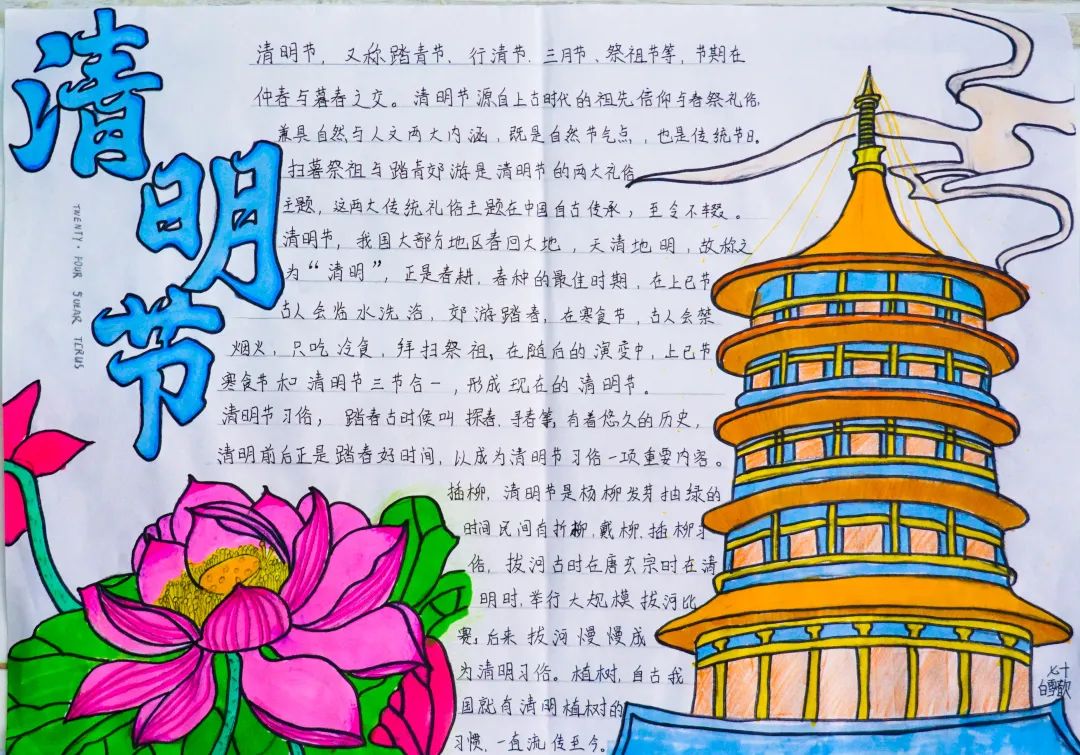 清明节
TWENTY·FOUR SULAR TERMS
清明节，又称踏青节、行清节、三月节、祭祖节等，节期在
仲春与暮春之交。清明节源自上古时代的祖先信仰与春祭礼俗，
兼具自然与人文两大内涵，既是自然节气点，也是传统节日。
扫墓祭祖与踏青郊游是清明节的两大礼俗
主题，这两大传统礼俗主题在中国自古传承，至今不辍。
清明节，我国大部分地区春回大地，天清地明，故称之
为“清明”，正是春耕、春种的最佳时期，在上巳节
古人会临水洗浴，郊游踏春，在寒食节，古人会禁
烟火，只吃冷食，拜扫祭祖。在随后的演变中，上巳节
寒食节和清明节三节合一，形成现在的清明节。
清明节习俗，踏春古时候叫探春、寻春等，有着悠久的历史，
清明前后正是踏春好时间，以成为清明节习俗一项重要内容。
插柳，清明节是杨柳发芽抽绿的
时间民间有折柳、戴柳、插柳习
俗，拔河古时在唐玄宗时在清
明时，举行大规模拔河比
赛，后来拔河慢慢成
为清明习俗。植树，自古我
国就有清明植树的
习惯，一直流传至今。
七十
白雪歌